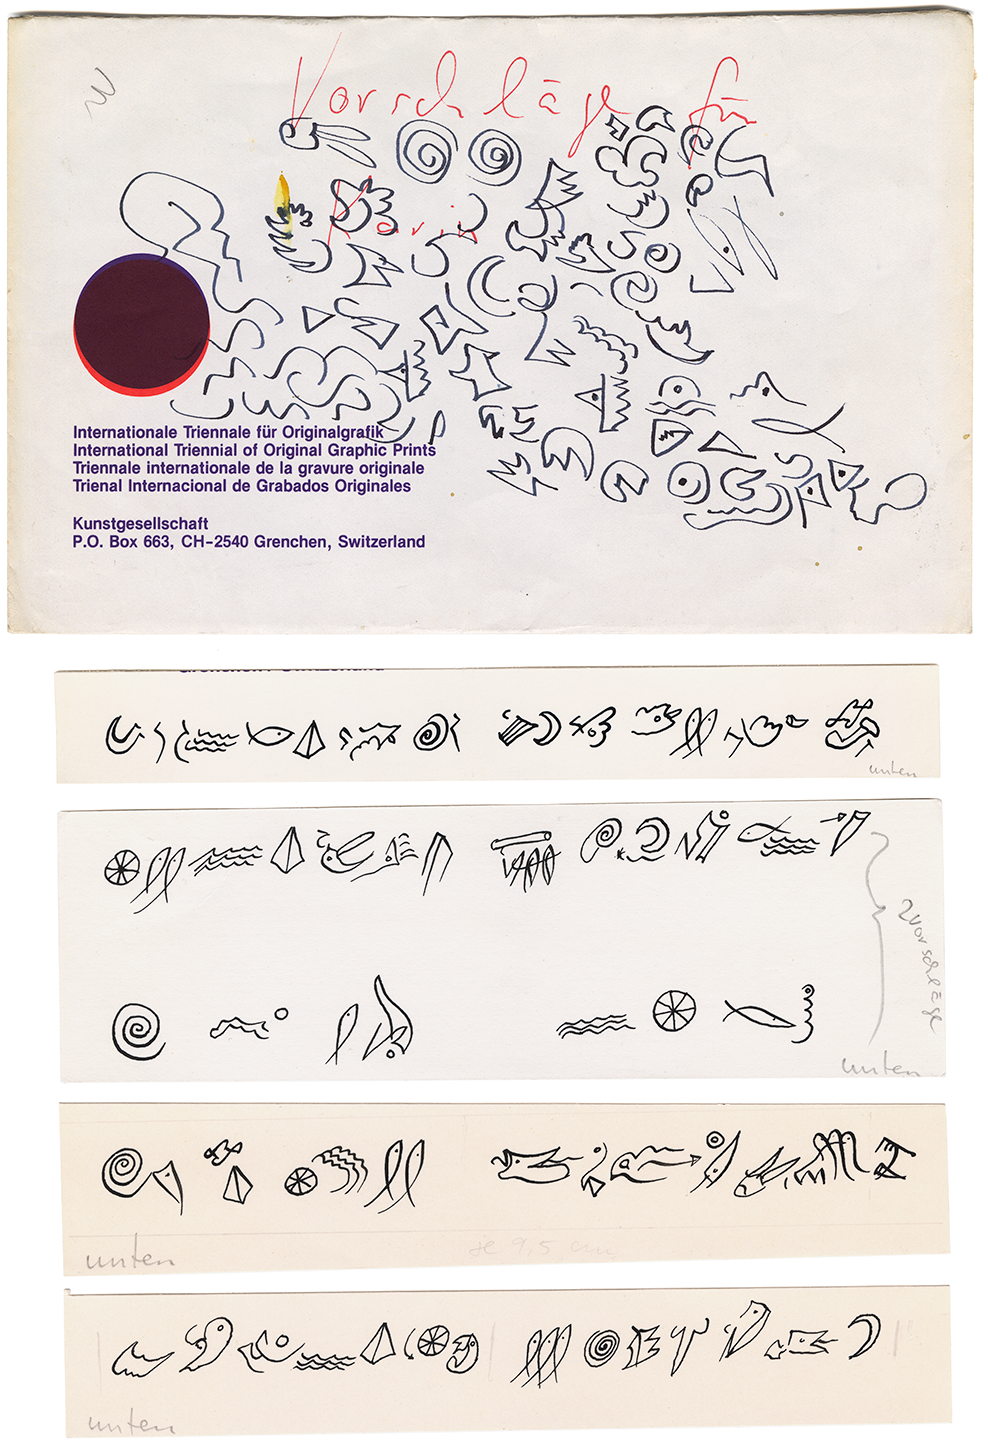 Vorschläge für
Karin
Internationale Triennale für Originalgrafik
International Triennial of Original Graphic Prints
Triennale internationale de la gravure originale
Trienal Internacional de Grabados Originales
Kunstgesellschaft
P.O. Box 663, CH-2540 Grenchen, Switzerland
unten
2 Vorschläge
unten
unten
je 9,5 cm
unten